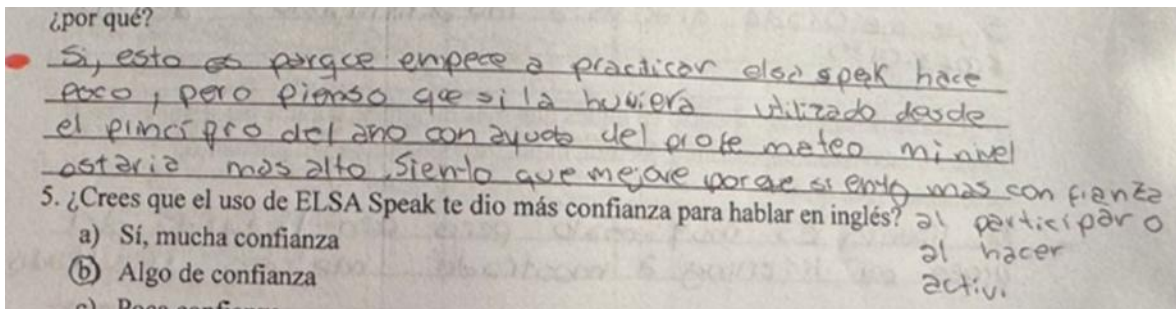 ¿por qué?
Si, esto es porqce empece a practicar elsa speak hace
poco, pero pienso qce si la huviera utilizado desde
el pincipro del ano con ayuda del profe mateo mi nivel
estaria mas alto, siento que mejore porqe siento mas confianza
5. ¿Crees que el uso de ELSA Speak te dio más confianza para hablar en inglés? al participar o
a) Sí, mucha confianza al hacer
b) Algo de confianza activi